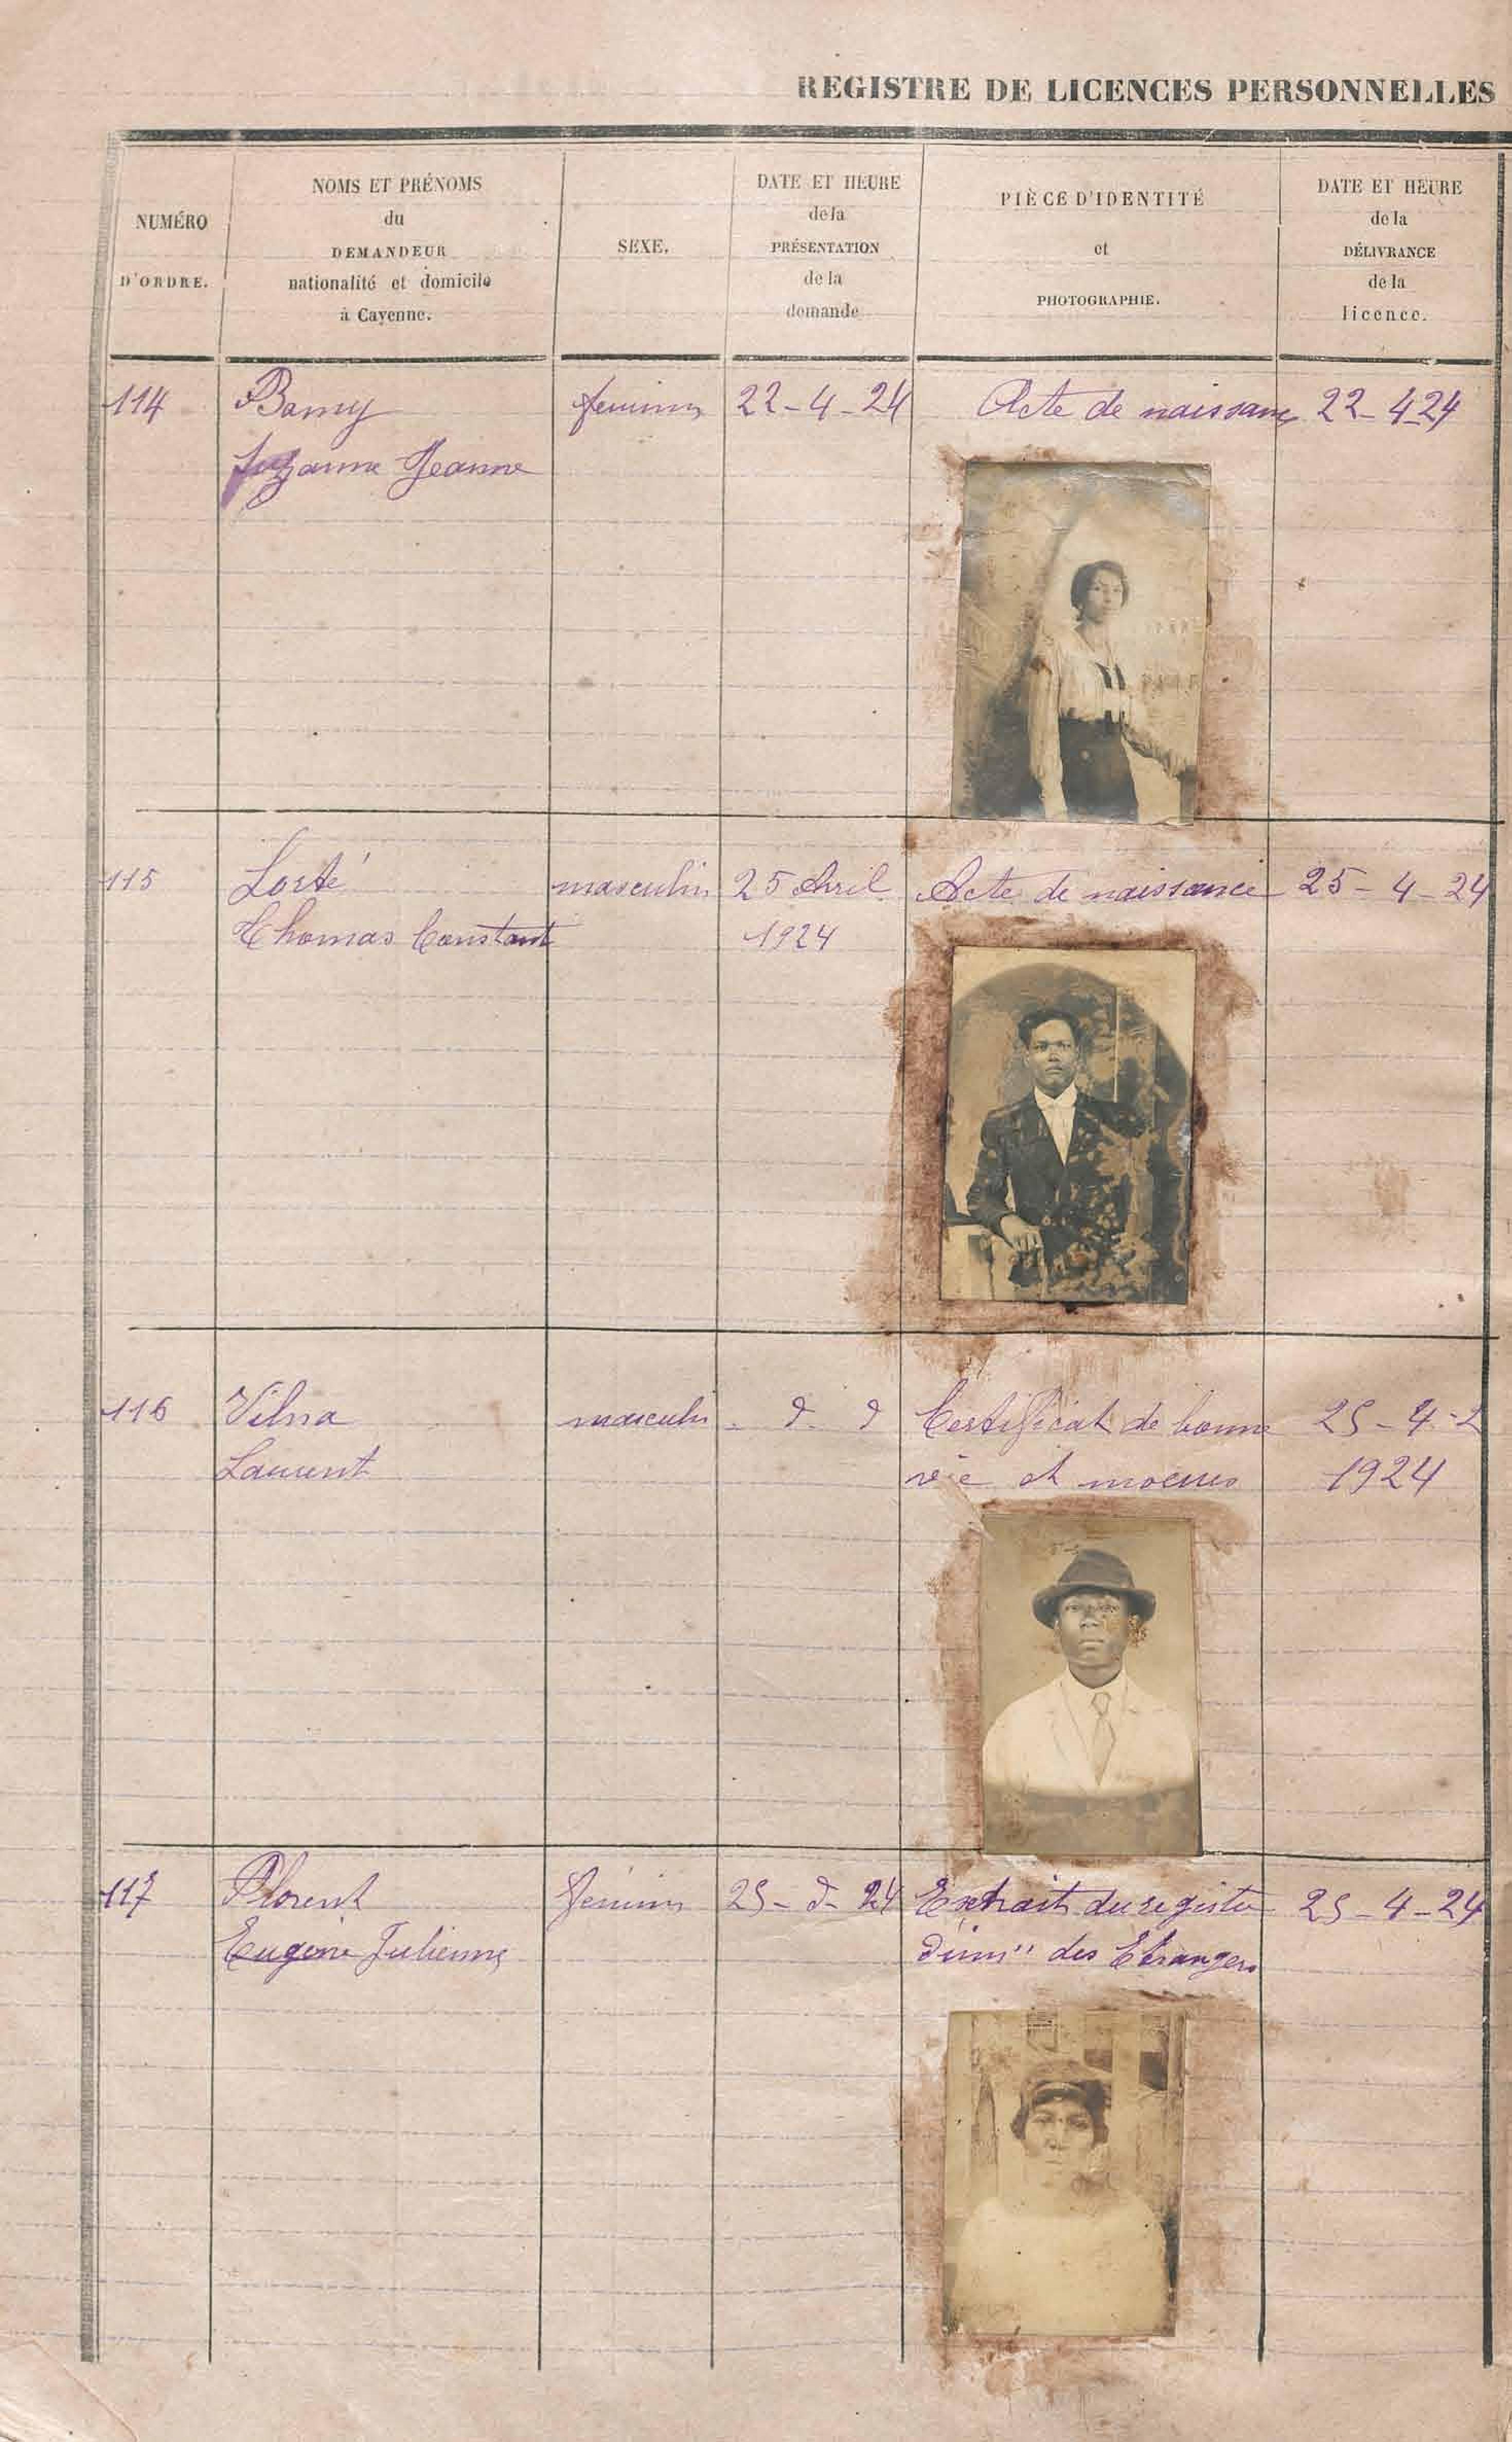 REGISTRE DE LICENCES PERSONNELLES
NUMÉRO
D'ORDRE.
NOMS ET PRÉNOMS
du
DEMANDEUR
nationalité et domicile
à Cayenne.
SEXE.
DATE ET HEURE
de la
PRÉSENTATION
de la
demande
PIÈCE D'IDENTITÉ
et
PHOTOGRAPHIE.
DATE ET HEURE
de la
DÉLIVRANCE
de la
licence.
114
Bamy
Suzanne Jeanne
feminin
22-4-24
Acte de naissance
22-4-24
115
Thomas Constant
masculin
25 Avril
1924
Acte de naissance
25-4-24
116
Laurent
masculin
Certificat de bonne
vie et moeurs
25-4-2
1924
117
Florent
Eugénie Julienne
féminin
25-d-24
Extrait du registre
des Etrangers
25-4-24